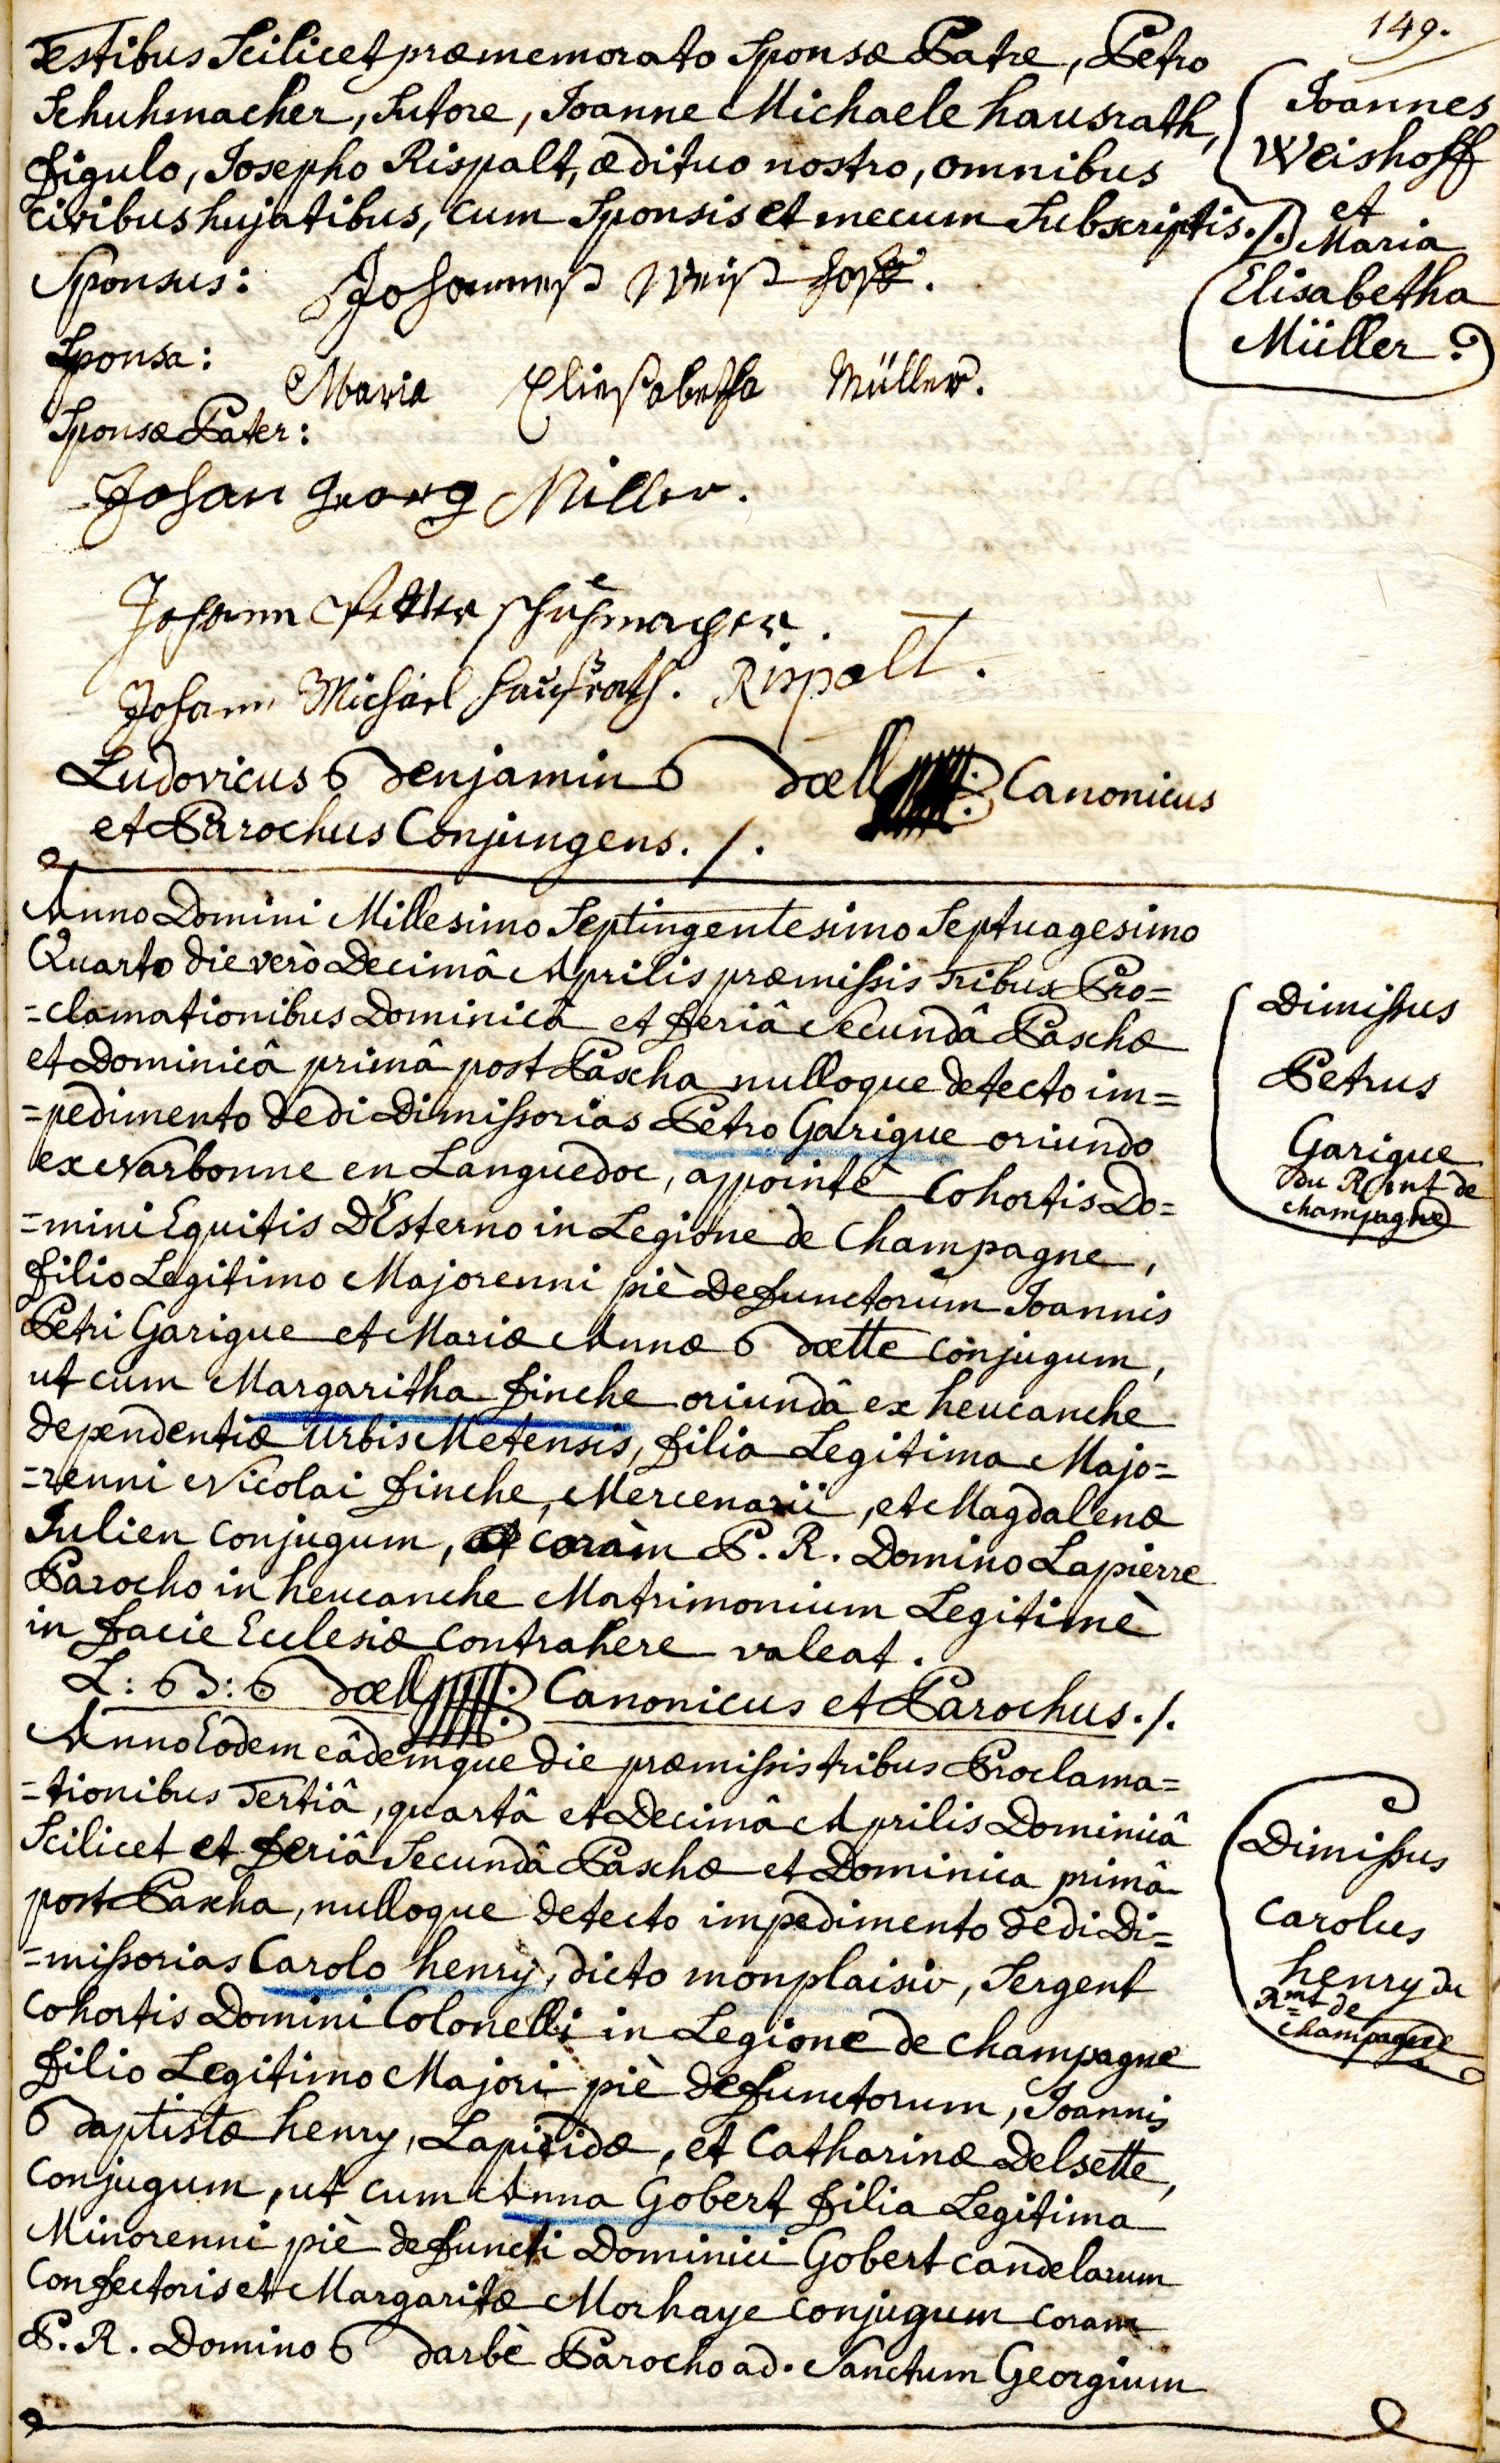 149.
Testibus Scilicet præmemorato Sponsæ Patre, Petro
Schuhmacher, Sutore, Joanne Michaele hausrath,
figulo, Josepho Rispalt, ædituo nostro, omnibus
civibus hujatibus, cum Sponsis et mecum Subscriptis./.
Joannes
Weishoff
et
Maria
Elisabetha
Müller
Sponsus: Johannes Weishoff.
Sponsa: Maria Eliesabetha Müller.
Sponsæ Pater:
Johan Georg Miller.
Johann Petter schuhmacher.
Johann Michael hausrath. Rispalt.
Ludovicus Benjamin Boell Canonicus
et Parochus Conjungens. /.
Anno Domini Millesimo Septingentesimo Septuagesimo
Quarto die verò Decimâ Aprilis præmissis tribus Pro=
=clamationibus Dominicâ et feriâ Secundâ Paschæ
et Dominicâ primâ post Pascha nulloque detecto im=
=pedimento dedi Dimissorias Petro Garigue oriundo
ex Narbonne en Languedoc, appointé Cohortis Do=
=mini Equitis D'Esterno in Legione de Champagne,
filio Legitimo Majorenni piè Defunctorum Joannis
Petri Garigue et Mariæ Annæ Boette conjugum,
ut cum Margaritha finche oriundâ ex heucanche
dependentiæ Urbis Metensis, filia Legitima Majo=
=renni Nicolai finche, Mercenarii, et Magdalenæ
Julien conjugum, coràm P. R. Domino Lapierre
Parocho in heucanche Matrimonium Legitimè
in facie Ecclesiæ contrahere valeat.
L: B: Boell Canonicus et Parochus./.
Dimissus
Petrus
Garigue
du Rgint de
champagne
Anno Eodem eâdemque die præmissis tribus Proclama=
=tionibus Tertiâ, quartâ et Decimâ Aprilis Dominicâ
Scilicet et feriâ Secundâ Paschæ et Dominica primâ
post Pascha, nulloque detecto impedimento dedi Di=
=missorias Carolo henry, dicto monplaisiv, Sergent
cohortis Domini Colonelli in Legione de champagne
filio Legitimo Majori piè defunctorum, Joannis
Baptistæ henry, Lapicidæ, et Catharinæ Delsette,
conjugum, ut cum Anna Gobert filia Legitima
Minorenni piè defuncti Dominici Gobert candelarum
Confectoris et Margaritæ Morhaye conjugum coram
P. R. Domino Barbè Parocho ad. Sanctum Georgium
Dimissus
Carolus
henry du
Rmt de
champagne